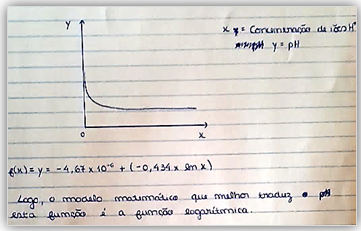 y
x = Concentração de iões H⁺
y = pH
0
x
f(x) = y = -4,67 x 10⁻⁶ + (-0,434 x ln x)
Logo, o modelo matemático que melhor traduz
esta função é a função logarítmica.